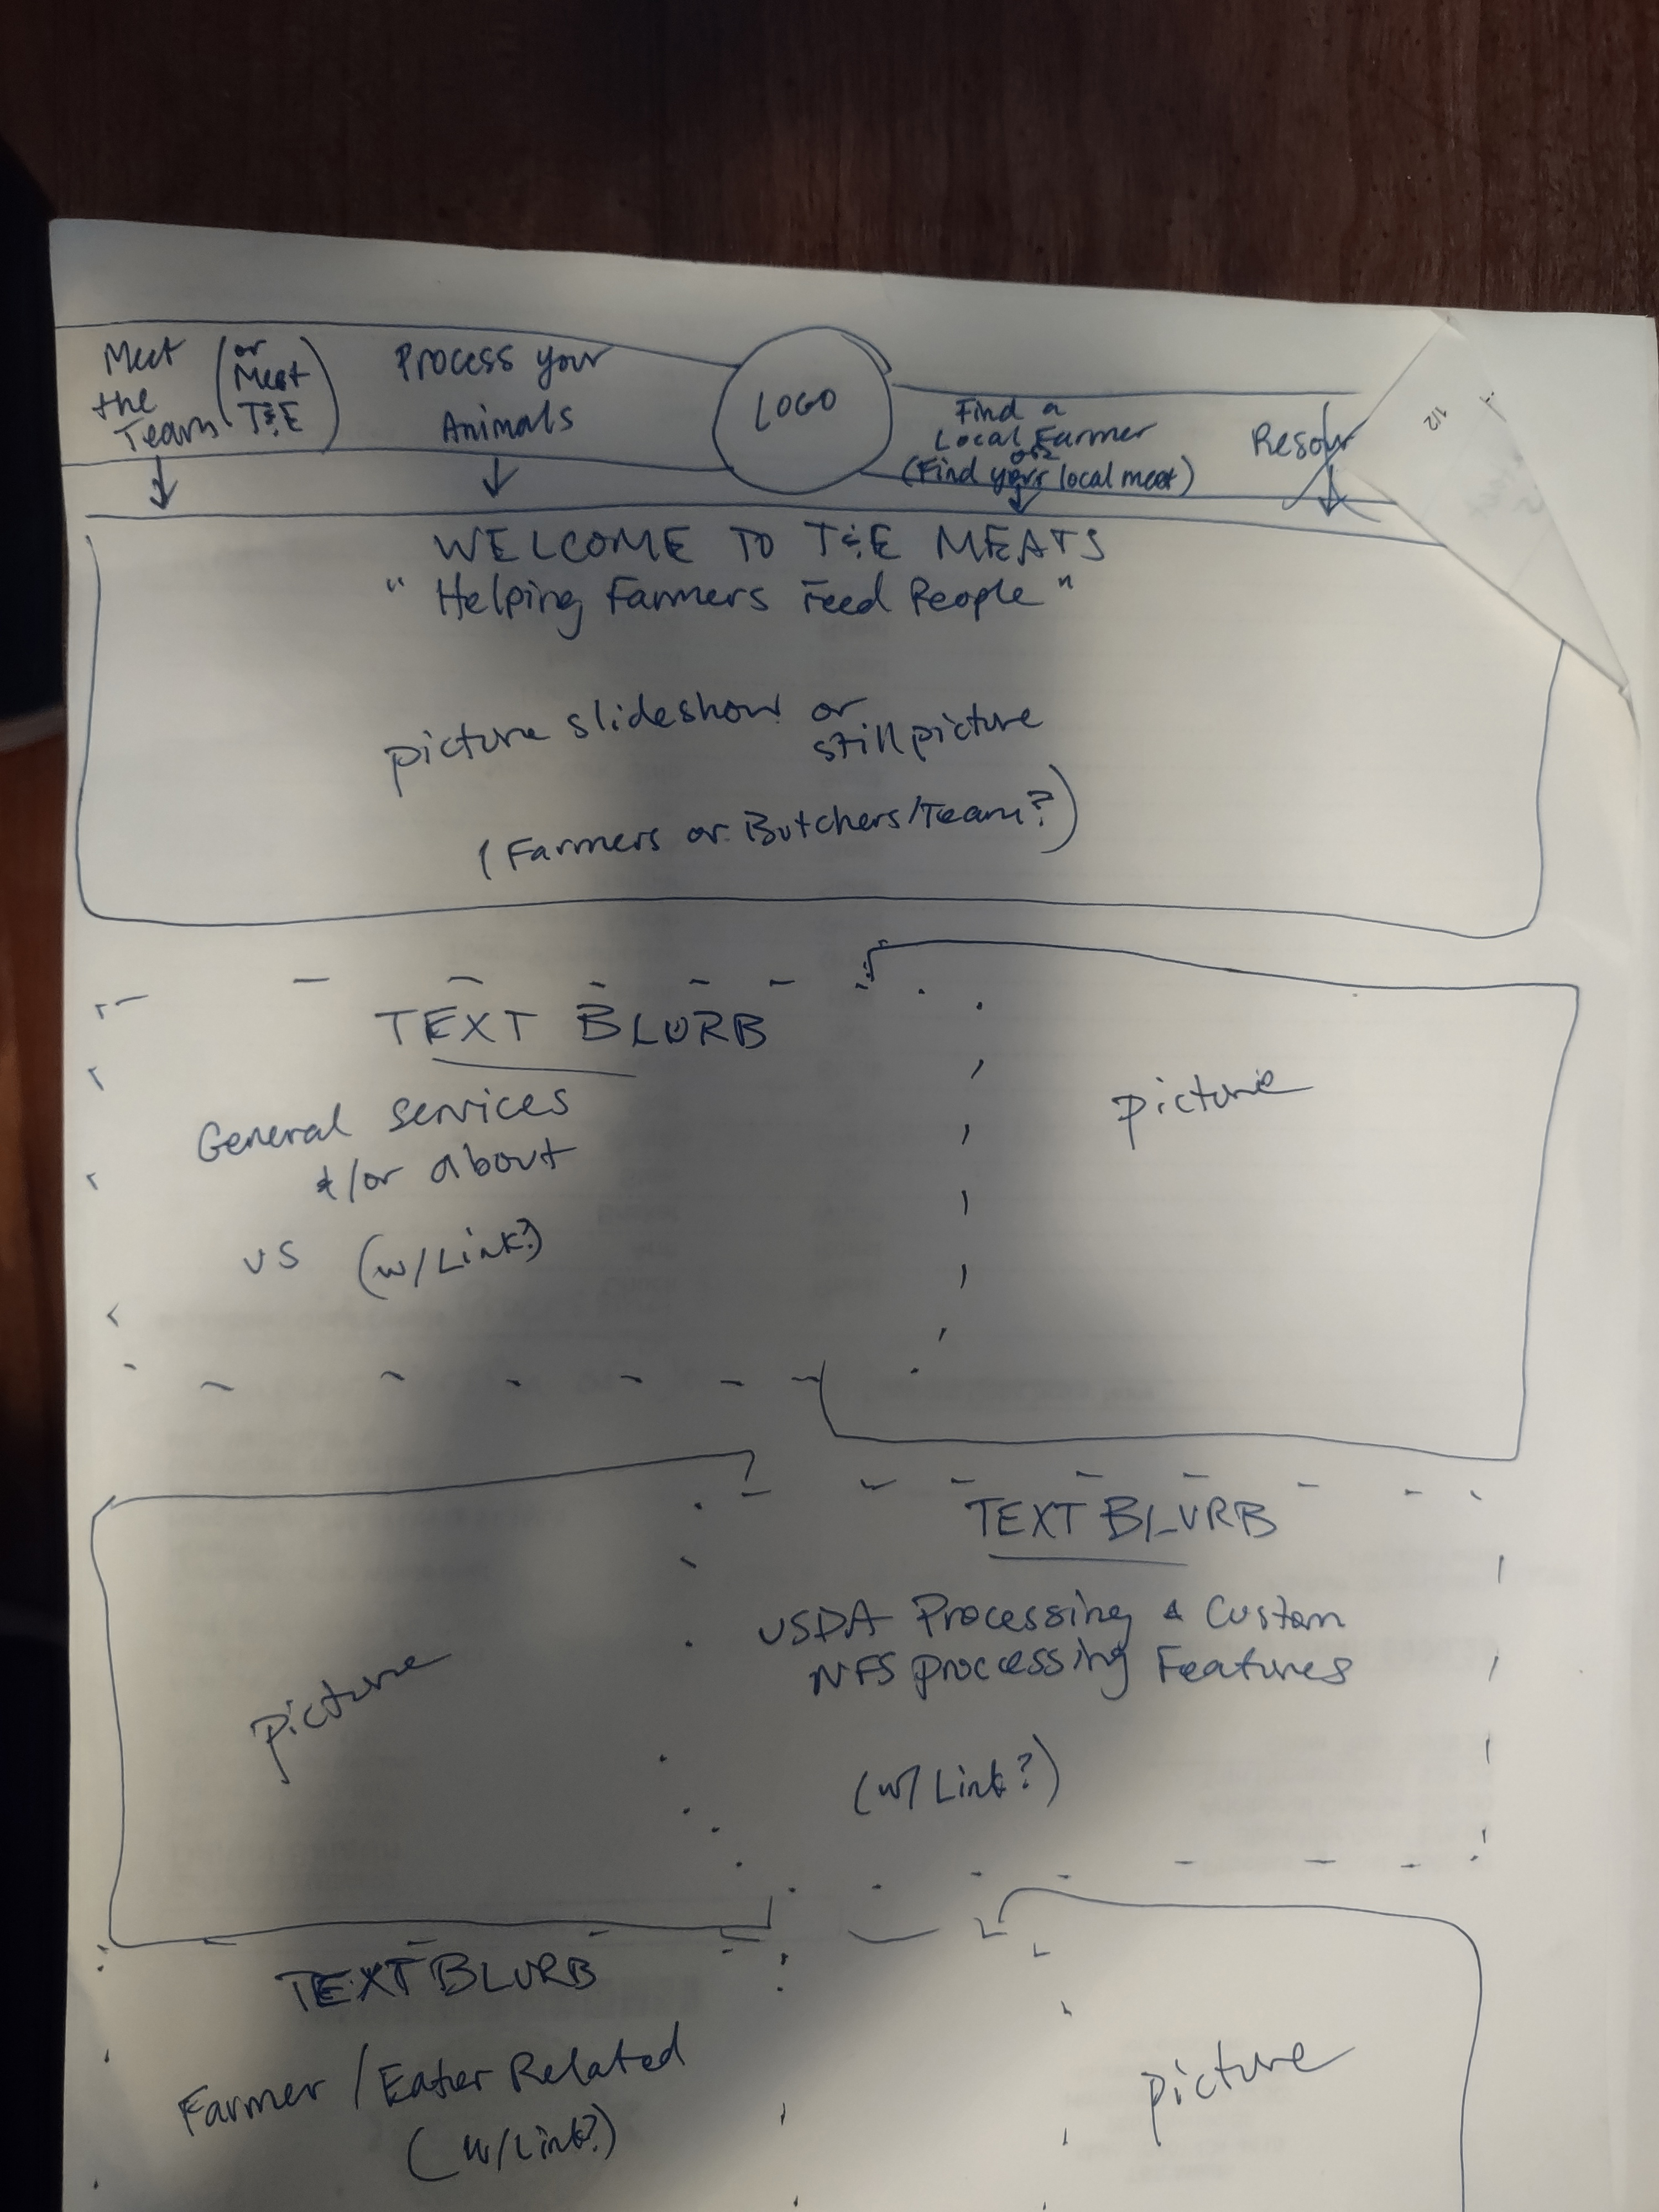 Meet
the
Team
(or
Meet
T&E)
Process your
Animals
LOGO
Find a
Local Farmer
or
(Find your local meat)
Resour
1/2
WELCOME TO T&E MEATS
"Helping Farmers Feed People"
picture slideshow or
still picture
(Farmers or Butchers/Team?)
TEXT BLURB
General services
&/or about
us (w/Link?)
picture
picture
TEXT BLURB
USDA Processing & Custom
NFS processing Features
(w/ Link?)
TEXT BLURB
Farmer/Eater Related
(w/Link?)
picture